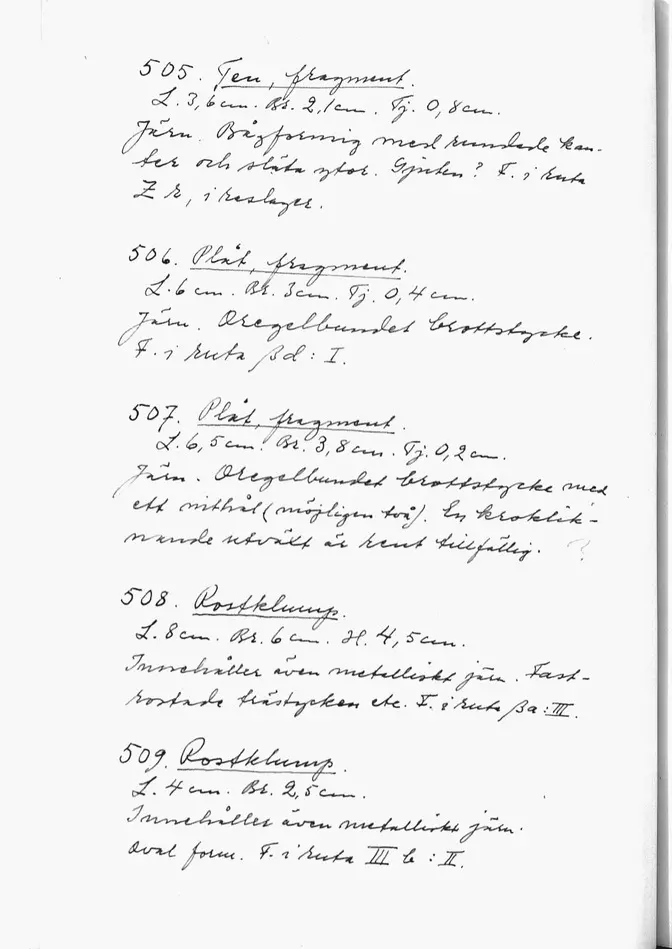 505. Ten, fragment.
L. 3,6cm. Br. 2,1cm. Tj. 0,8cm.
Järn. Bågformig med rundade kan-
ter och släta ytor. Gjuten? F. i ruta
Z k, i raslager.
506. Plåt, fragment.
L. 6cm. Br. 3cm. Tj. 0,4cm.
Järn. Oregelbundet brottstycke.
F. i ruta βd: I.
507. Plåt, fragment.
L. 6,5cm. Br. 3,8cm. Tj. 0,2cm.
Järn. Oregelbundet brottstycke med
ett nithål (möjligen två). En kroklik-
nande är rent tillfällig. ?
508. Rostklump.
L. 8cm. Br. 6cm. H. 4,5cm.
Innehåller även metalliskt järn. Fast-
rostade trästycken etc. F. i ruta βa: III.
509. Rostklump.
L. 4cm. Br. 2,5cm.
Innehåller även metalliskt järn.
Oval form. F. i ruta III b: II.